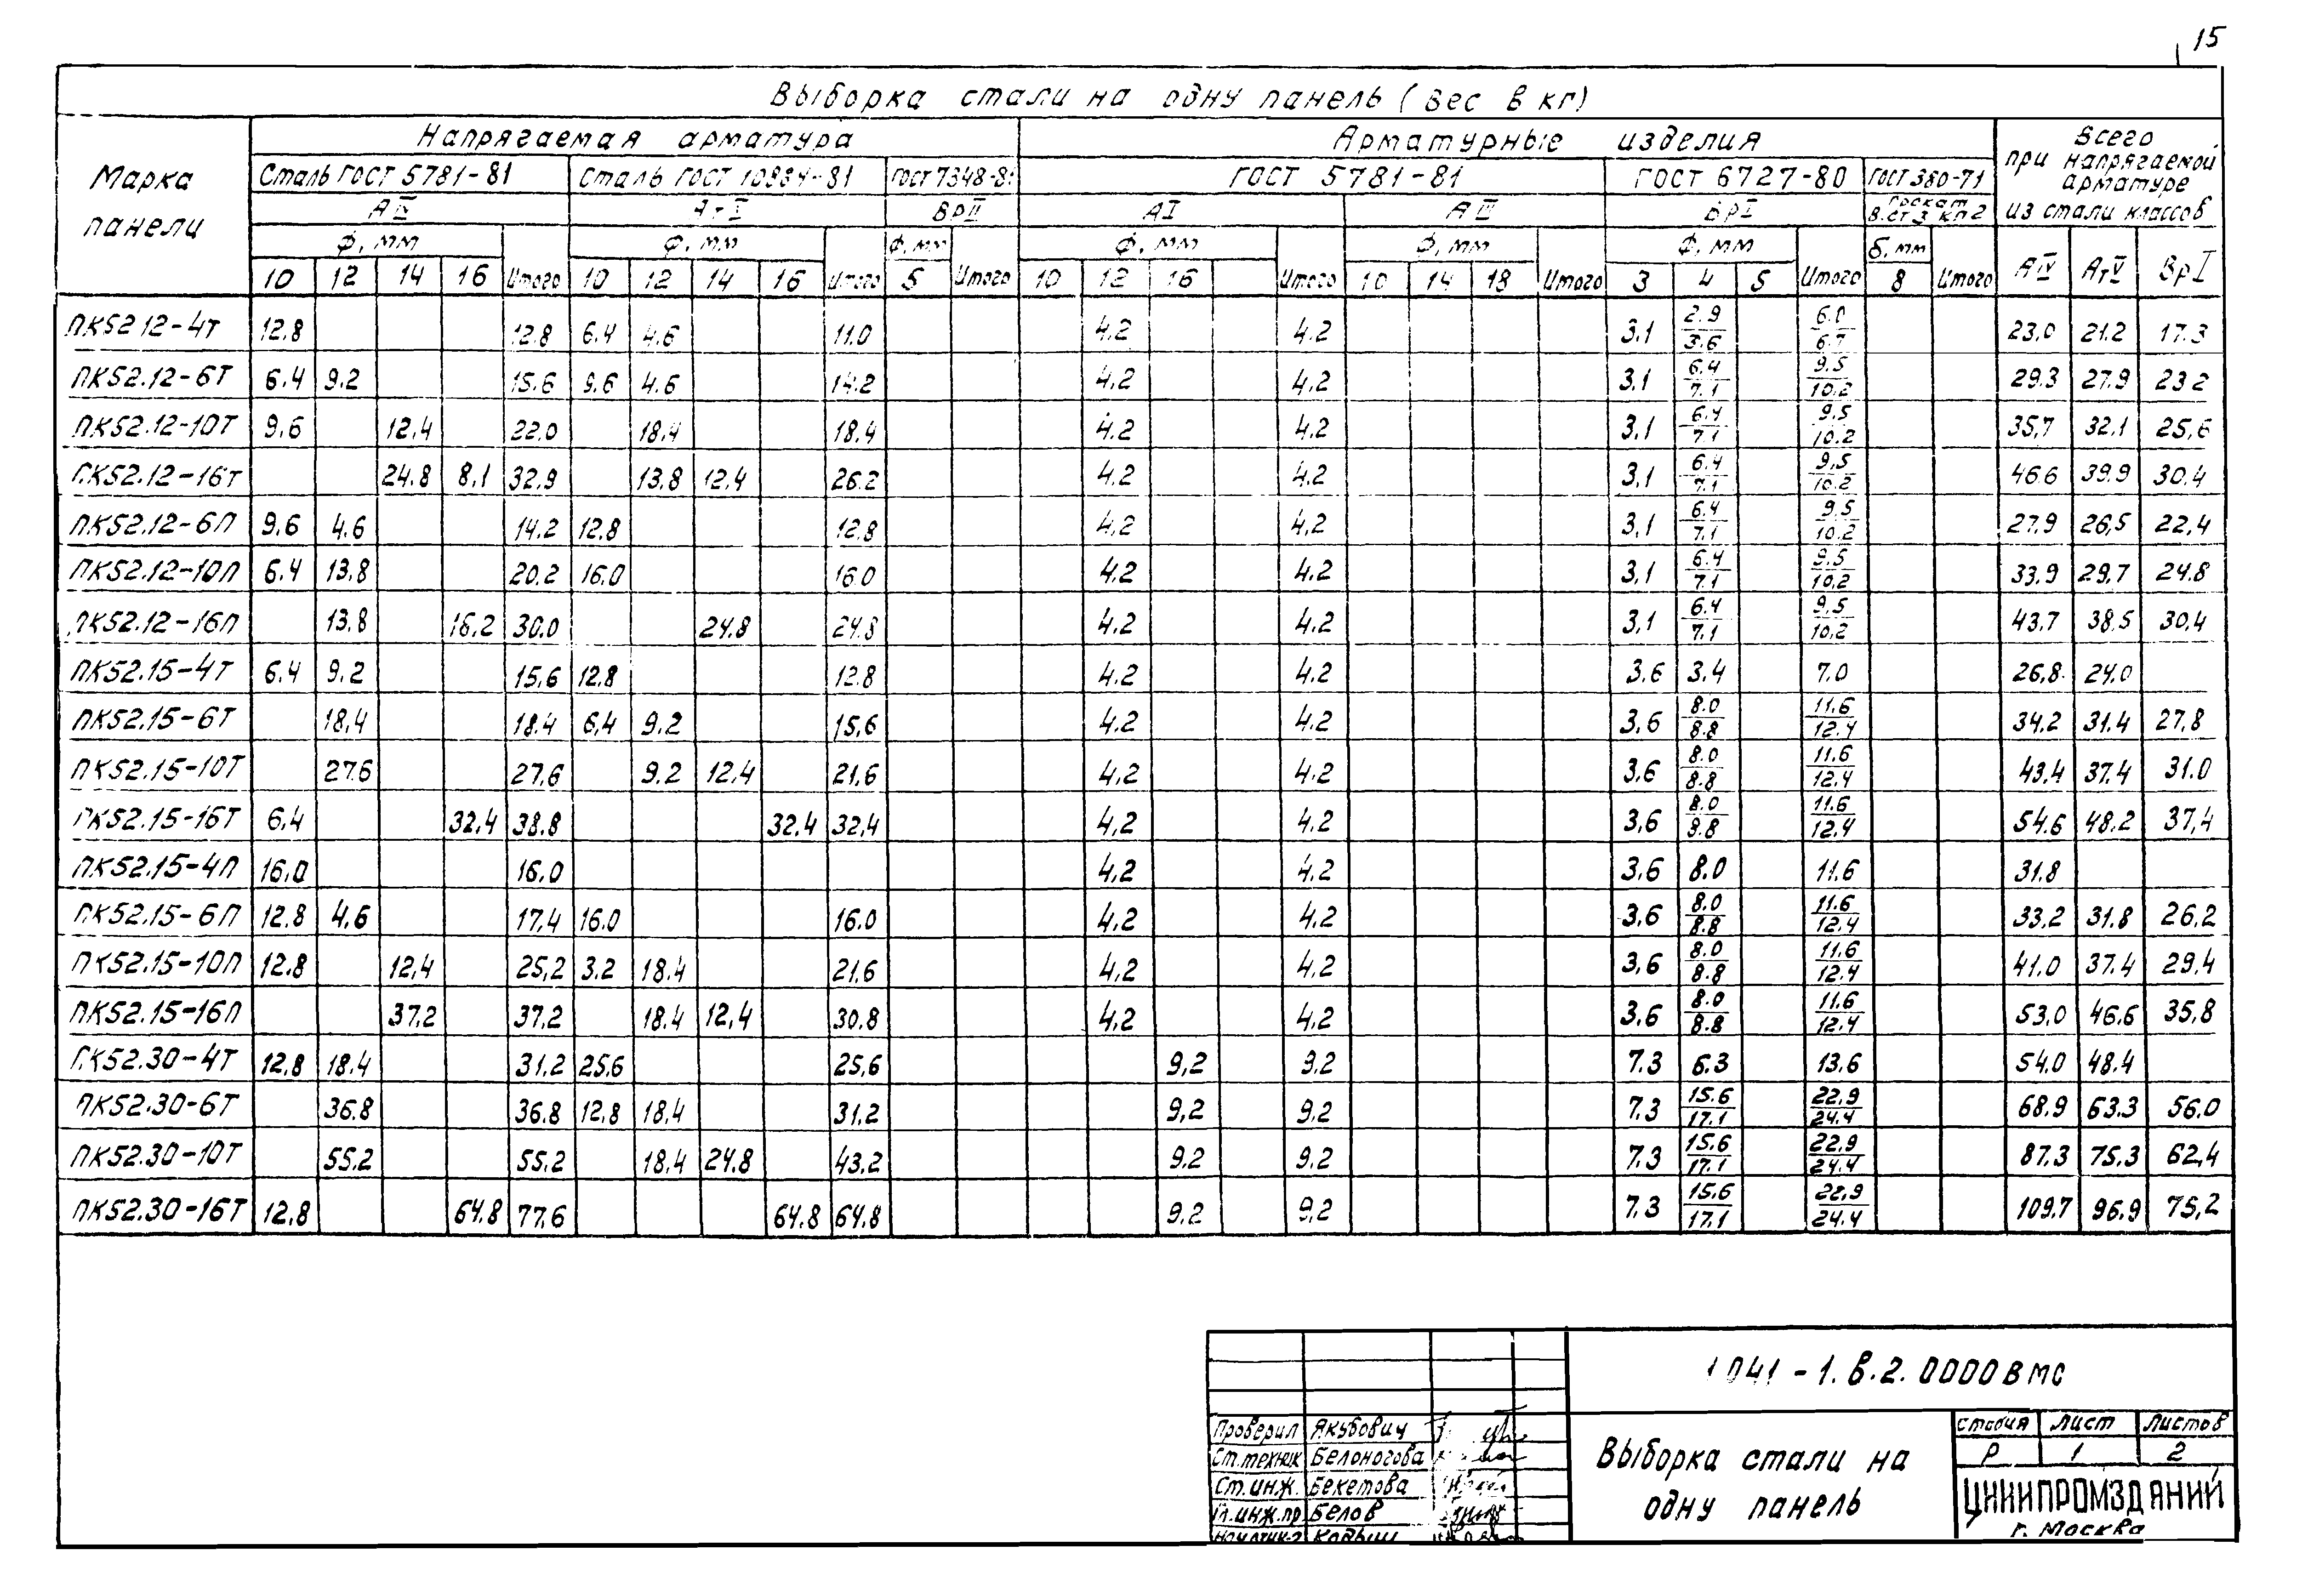 15
Выборка стали на одну панель (вес в кг)
Марка панели
Напрягаемая арматура
Арматурные изделия
Всего при напрягаемой арматуре из стали классов
Сталь ГОСТ 5781-81
Сталь ГОСТ 10884-81
ГОСТ 7348-81
ГОСТ 5781-81
ГОСТ 6727-80
ГОСТ 380-71
АIV
ВрII
АI
АIII
ВрI
Прокат В.ст 3 кп 2
ф, мм ф, мм ф, мм ф, мм ф, мм ф, мм б, мм
10 12 14 16 Итого 10 12 14 16 Итого 5 Итого 10 12 16 Итого 10 14 18 Итого 3 4 5 Итого 8 Итого АIV АтV ВрI
ПК52 12-4Т 12.8 12.8 6.4 4.6 11.0 4.2 4.2 3.1 2.9/3.6 6.0/6.7 23,0 21.2 17.3
ПК52.12-6Т 6.4 9.2 15.6 9.6 4.6 14.2 4,2 4,2 3.1 6.4/7.1 9.5/10.2 29.3 27.9 23 2
ПК52.12-10Т 9,6 12,4 22.0 18.4 18.4 4.2 4.2 3,1 6.4/7.1 9.5/10.2 35,7 32,1 25,6
ПК52.12-16Т 24.8 8,1 32,9 13.8 12,4 26.2 4.2 4.2 3,1 6.4/7.1 9,5/10.2 46.6 39.9 30.4
ПК52.12-6П 9,6 4.6 14.2 12.8 12.8 4,2 4,2 3,1 6.4/7.1 9.5/10.2 27.9 26,5 22,4
ПК52.12-10П 6.4 13,8 20.2 16.0 16.0 4.2 4.2 3,1 6.4/7.1 9.5/10.2 33.9 29,7 24.8
ПК52.12-16П 13.8 16,2 30.0 24.8 24.8 4.2 4.2 3,1 6.4/7.1 9,5/10,2 43.7 38.5 30,4
ПК52.15-4Т 6.4 9,2 15,6 12.8 12.8 4.2 4.2 3.6 3,4 7.0 26,8 24,0
ПК52.15-6Т 18,4 18.4 6,4 9.2 15,6 4.2 4.2 3,6 8.0/8.8 11.6/12.4 34.2 31.4 27,8
ПК52.15-10Т 27.6 27,6 9.2 12,4 21,6 4,2 4.2 3,6 8.0/8.8 11.6/12.4 43.4 37.4 31.0
ПК52.15-16Т 6,4 32,4 38.8 32,4 32,4 4,2 4.2 3,6 8.0/8.8 11.6/12.4 54.6 48.2 37,4
ПК52.15-4П 16.0 16.0 4.2 4.2 3.6 8.0 11.6 31.8
ПК52.15-6П 12.8 4,6 17,4 16.0 16.0 4,2 4.2 3,6 8.0/8.8 11.6/12.4 33,2 31.8 26,2
ПК52.15-10П 12.8 12,4 25,2 3.2 18.4 21,6 4,2 4,2 3,6 8.0/8.8 11.6/12.4 41.0 37.4 29,4
ПК52.15-16П 37,2 37,2 18.4 12,4 30.8 4,2 4.2 3.6 8.0/8.8 11.6/12.4 53,0 46.6 35,8
ПК52.30-4Т 12,8 18.4 31.2 25.6 25,6 9,2 9.2 7.3 6.3 13.6 54.0 48.4
ПК52.30-6Т 36.8 36.8 12,8 18,4 31.2 9,2 9.2 7.3 15.6/17.1 22.9/24.4 68.9 63.3 56.0
ПК52.30-10Т 55.2 55.2 18,4 24.8 43.2 9.2 9.2 7.3 15.6/17.1 22.9/24.4 87.3 75.3 62,4
ПК52.30-16Т 12,8 64.8 77,6 64.8 64.8 9.2 9,2 7.3 15.6/17.1 22.9/24.4 109.7 96.9 75,2
1 041-1.В.2.0000ВМС
Проверил Якубович
Ст.техник Белоногова
Ст.инж. Бекетова
Гл.инж.пр. Белов
Выборка стали на
одну панель
Стадия Лист Листов
Р 1 2
ЦНИИПРОМЗДАНИЙ
г. Москва